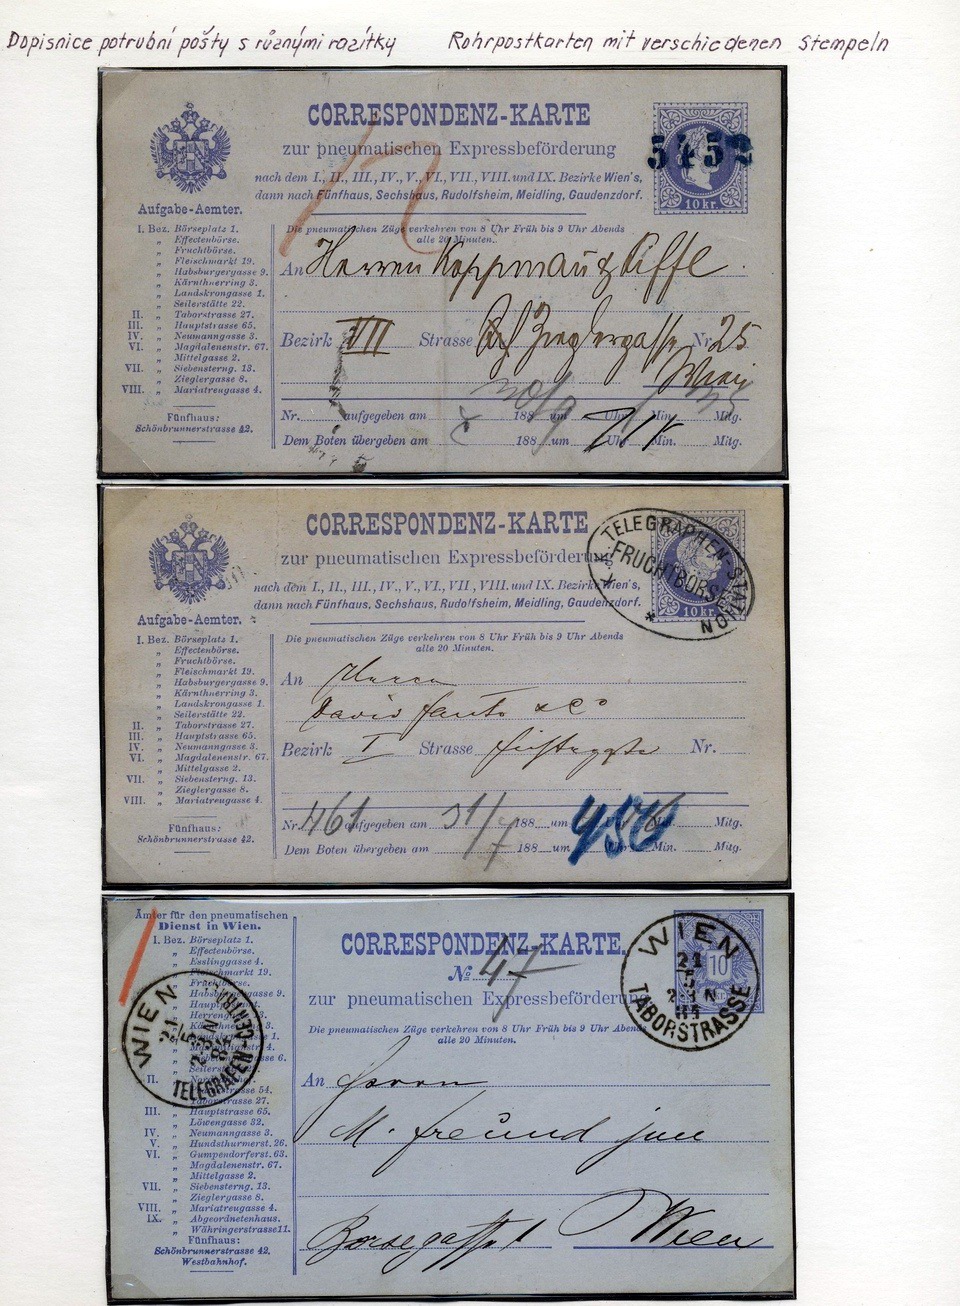 Dopisnice potrubní pošty s různými razítky Rohrpostkarten mit verschiedenen Stempeln
CORRESPONDENZ-KARTE
zur pneumatischen Expressbeförderung
nach dem I., II., III., IV., V., VI., VII., VIII. und IX. Bezirke Wien's,
dann nach Fünfhaus, Sechshaus, Rudolfsheim, Meidling, Gaudenzdorf.
5452
10 kr.
Aufgabe-Aemter.
I. Bez. Börseplatz 1.
„ Effectenbörse.
„ Fruchtbörse.
„ Fleischmarkt 19.
„ Habsburgergasse 9.
„ Kärnthnerring 3.
„ Landskrongasse 1.
„ Seilerstätte 22.
II. „ Taborstrasse 27.
III. „ Hauptstrasse 65.
IV. „ Neumanngasse 3.
VI. „ Magdalenenstr. 67.
„ Mittelgasse 2.
VII. „ Siebensterng. 13.
„ Zieglergasse 8.
VIII. „ Mariatreugasse 4.
Fünfhaus:
Schönbrunnerstrasse 42.
Die pneumatischen Züge verkehren von 8 Uhr Früh bis 9 Uhr Abends
alle 20 Minuten.
An Herren
Bezirk VIII Strasse Zieglergasse Nr. 25
Wien
Nr. aufgegeben am 20/9 188 um Uhr Min. Mitg.
Dem Boten übergeben am 188 um Uhr Min. Mitg.
CORRESPONDENZ-KARTE
zur pneumatischen Expressbeförderung
nach dem I., II., III., IV., V., VI., VII., VIII. und IX. Bezirke Wien's,
dann nach Fünfhaus, Sechshaus, Rudolfsheim, Meidling, Gaudenzdorf.
K.K. TELEGRAPHEN-STATION
FRUCHTBÖRSE
10 kr.
Aufgabe-Aemter.
I. Bez. Börseplatz 1.
„ Effectenbörse.
„ Fruchtbörse.
„ Fleischmarkt 19.
„ Habsburgergasse 9.
„ Kärnthnerring 3.
„ Landskrongasse 1.
„ Seilerstätte 22.
II. „ Taborstrasse 27.
III. „ Hauptstrasse 65.
IV. „ Neumanngasse 3.
VI. „ Magdalenenstr. 67.
„ Mittelgasse 2.
VII. „ Siebensterng. 13.
„ Zieglergasse 8.
VIII. „ Mariatreugasse 4.
Fünfhaus:
Schönbrunnerstrasse 42.
Die pneumatischen Züge verkehren von 8 Uhr Früh bis 9 Uhr Abends
alle 20 Minuten.
An Herren
David
Bezirk I Strasse Nr.
Nr. 461 aufgegeben am 31/7 188 um Uhr Min. Mitg.
Dem Boten übergeben am 188 um Uhr Min. Mitg.
Ämter für den pneumatischen
Dienst in Wien.
I. Bez. Börseplatz 1.
„ Effectenbörse.
„ Esslinggasse 4.
„ Fleischmarkt 19.
WIEN
TELEGRAFEN-CENTRALE
II.
Taborstrasse 27.
III. „ Hauptstrasse 65.
„ Löwengasse 32.
IV. „ Neumanngasse 3.
V. „ Hundsthurmerst. 26.
VI. „ Gumpendorferst. 63.
„ Magdalenenstr. 67.
„ Mittelgasse 2.
VII. „ Siebensterng. 13.
„ Zieglergasse 8.
VIII. „ Mariatreugasse 4.
IX. „ Abgeordnetenhaus.
„ Währingerstrasse 11.
Fünfhaus:
Schönbrunnerstrasse 42.
Westbahnhof.
CORRESPONDENZ-KARTE.
No 47
zur pneumatischen Expressbeförderung
WIEN
21
5
TABORSTRASSE
10
Die pneumatischen Züge verkehren von 8 Uhr Früh bis 9 Uhr Abends
alle 20 Minuten.
An Herrn
M. Freund jun
Börsegasse 1 Wien